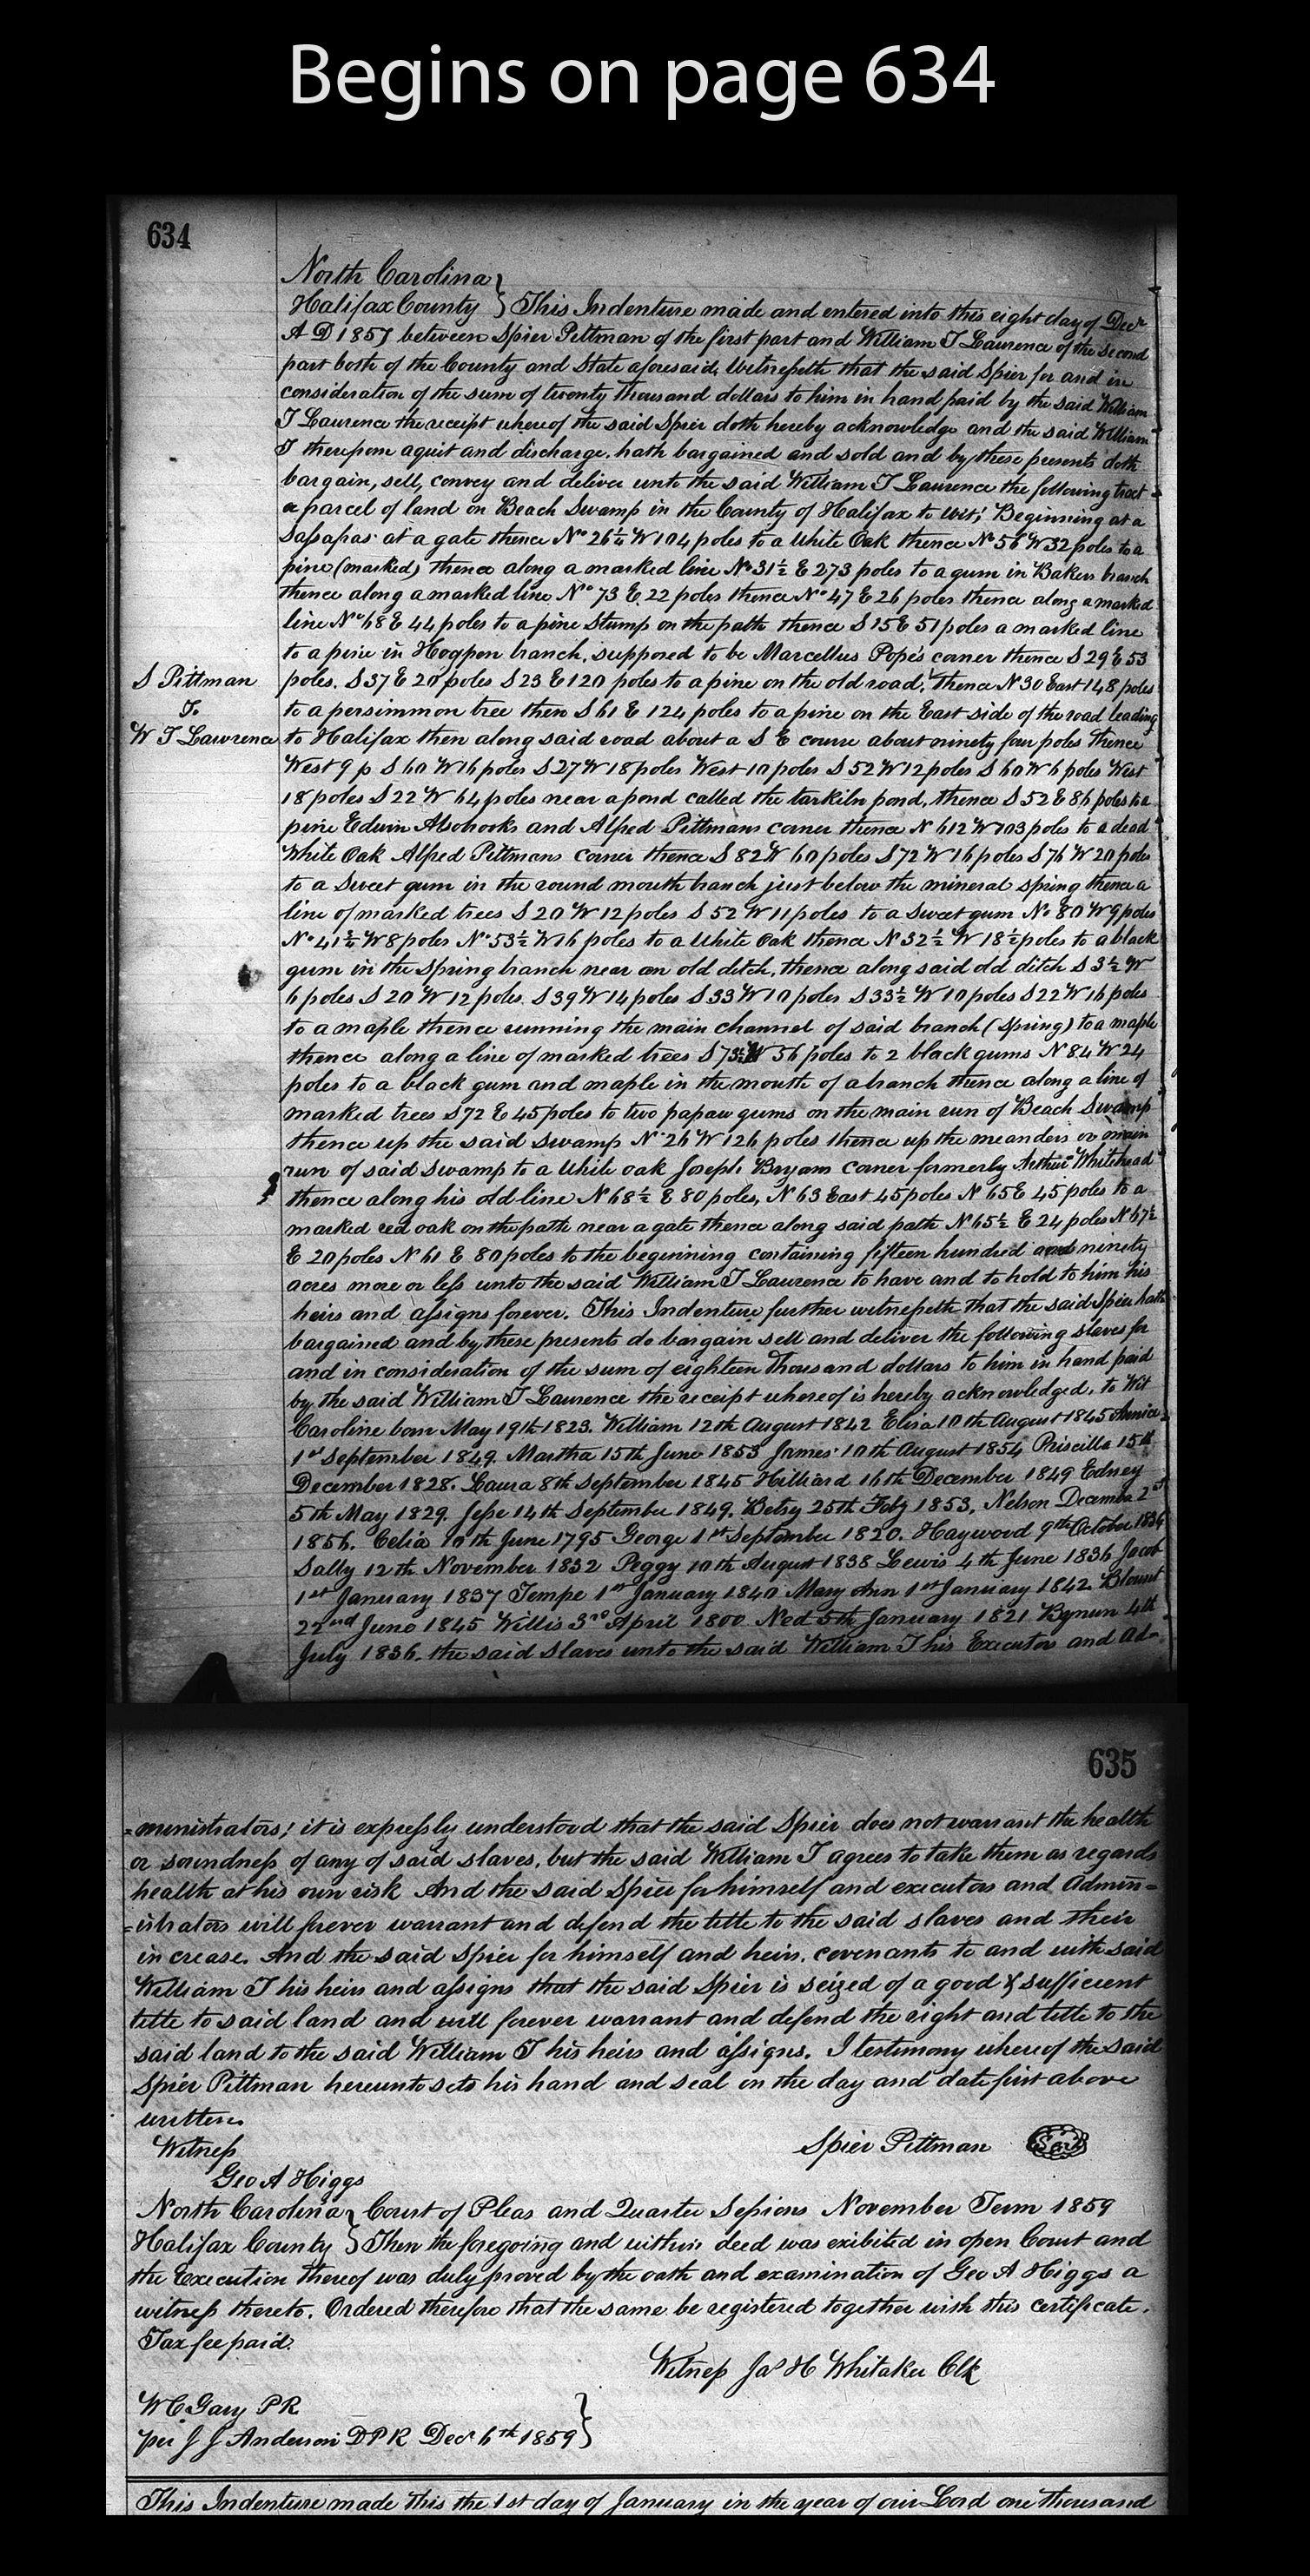 Begins on page 634
634
North Carolina }
Halifax County } This Indenture made and entered into this eight day of Decr
A D 1857 between Spier Pittman of the first part and William T Lawrence of the second
part both of the County and State aforesaid, Witnesseth that the said Spier for and in
consideration of the sum of twenty thousand dollars to him in hand paid by the said William
T Lawrence the receipt whereof the said Spier doth hereby acknowledge and the said William
T therepom aquit and discharge. hath bargained and sold and by these presents doth
bargain, sell, convey and deliver unto the said William T Lawrence the following tract
or parcel of land on Beach Swamp in the County of Halifax to wit; Beginning at a
Sassafras at a gate thence No 26¼ W 104 poles to a White Oak thence No 56 W 32 poles to a
pine (marked) thence along a marked line No 31½ E 273 poles to a gum in Bakers branch
thence along a marked line No 73 E 22 poles thence No 47 E 26 poles thence along a marked
line No 68 E 44 poles to a pine Stump on the path thence S 15 E 51 poles a marked line
to a pine in Hogpen branch, supposed to be Marcellus Pope's corner thence S 29 E 53
poles. S 37 E 20 poles S 23 E 120 poles to a pine on the old road, thence N 30 East 148 poles
S Pittman
To
W T Lawrence
to a persimmon tree then S 61 E 124 poles to a pine on the East side of the road leading
to Halifax then along said road about a S E course about ninety four poles thence
West 9 p S 60 W 16 poles S 27 W 18 poles West 10 poles S 52 W 12 poles S 60 W 6 poles West
18 poles S 22 W 64 poles near a pond called the tarkiln pond, thence S 52 E 86 poles to a
pine Edwin Alsobrooks and Alfred Pittmans corner thence N 612 W 103 poles to a dead
White Oak Alfred Pittmans corner thence S 82 W 60 poles S 72 W 16 poles S 76 W 20 poles
to a Sweet gum in the round mouth branch just below the mineral spring thence a
line of marked trees S 20 W 12 poles S 52 W 11 poles to a Sweet gum No 80 W 9 poles
No 41¾ W 8 poles No 53½ W 16 poles to a White Oak thence N 32½ W 18½ poles to a black
gum in the Spring branch near an old ditch, thence along said old ditch S 3½ W
6 poles S 20 W 12 poles. S 39 W 14 poles S 33 W 10 poles S 33½ W 10 poles S 22 W 16 poles
to a maple thence running the main channel of said branch (Spring) to a maple
thence along a line of marked trees S 73½ W 56 poles to 2 black gums N 84 W 24
poles to a black gum and maple in the mouth of a branch thence along a line of
marked trees S 72 E 45 poles to two papaw gums on the main run of Beach Swamp
thence up the said swamp N 26 W 126 poles thence up the meanders or main
run of said swamp to a White oak Joseph Bryans corner formerly Arthur Whitehead
thence along his old line N 68½ E 80 poles, N 63 East 45 poles N 65 E 45 poles to a
marked red oak on the path near a gate thence along said path N 65½ E 24 poles N 67½
E 20 poles N 61 E 80 poles to the beginning containing fifteen hundred and ninety
acres more or less unto the said William T Lawrence to have and to hold to him his
heirs and assigns forever. This Indenture further witnesseth that the said Spier hath
bargained and by these presents do bargain sell and deliver the following slaves for
and in consideration of the sum of eighteen thousand dollars to him in hand paid
by the said William T Lawrence the receipt whereof is hereby acknowledged, to Wit
Caroline born May 19th 1823. William 12th August 1842 Eliza 10th August 1845 Annica
1st September 1849. Martha 15th June 1853 James 10th August 1854 Priscilla 15th
December 1828. Laura 8th September 1845 Hilliard 16th December 1849 Edney
5th May 1829. Jesse 14th September 1849. Betsy 25th Feby 1853. Nelson December 2nd
1856. Celia 10th June 1795 George 1st September 1820. Haywood 9th October 1834
Sally 12th November 1832 Peggy 10th August 1838 Lewis 4th June 1836 Jacob
1st January 1837 Tempe 1st January 1840 Mary Ann 1st January 1842 Blount
22nd June 1845 Willis 3rd April 1800 Ned 5th January 1821 Bynum 4th
July 1836. the said slaves unto the said William T his Executors and Ad-
635
=ministrators; it is expressly understood that the said Spier does not warrant the health
or soundness of any of said slaves, but the said William T agrees to take them as regards
health at his own risk And the said Spier for himself and executors and Admin=
=istrators will forever warrant and defend the title to the said slaves and their
increase. And the said Spier for himself and heirs, covenants to and with said
William T his heirs and assigns that the said Spier is seized of a good & sufficient
title to said land and will forever warrant and defend the right and title to the
said land to the said William T his heirs and assigns. I testimony whereof the said
Spier Pittman hereunto sets his hand and seal on the day and date first above
written.
Witness Spier Pittman Seal
Geo A Higgs
North Carolina } Court of Pleas and Quarter Sessions November Term 1859
Halifax County } Then the foregoing and within deed was exibited in open Court and
the Execution thereof was duly proved by the oath and examination of Geo A Higgs a
witness thereto. Ordered therefore that the same be registered together with this certificate.
Tax fee paid.
Witness Jas H Whitaker Clk
W C Gary P R
per J J Anderson D P R Decr 6th 1859 }
This Indenture made this the 1st day of January in the year of our Lord one thousand